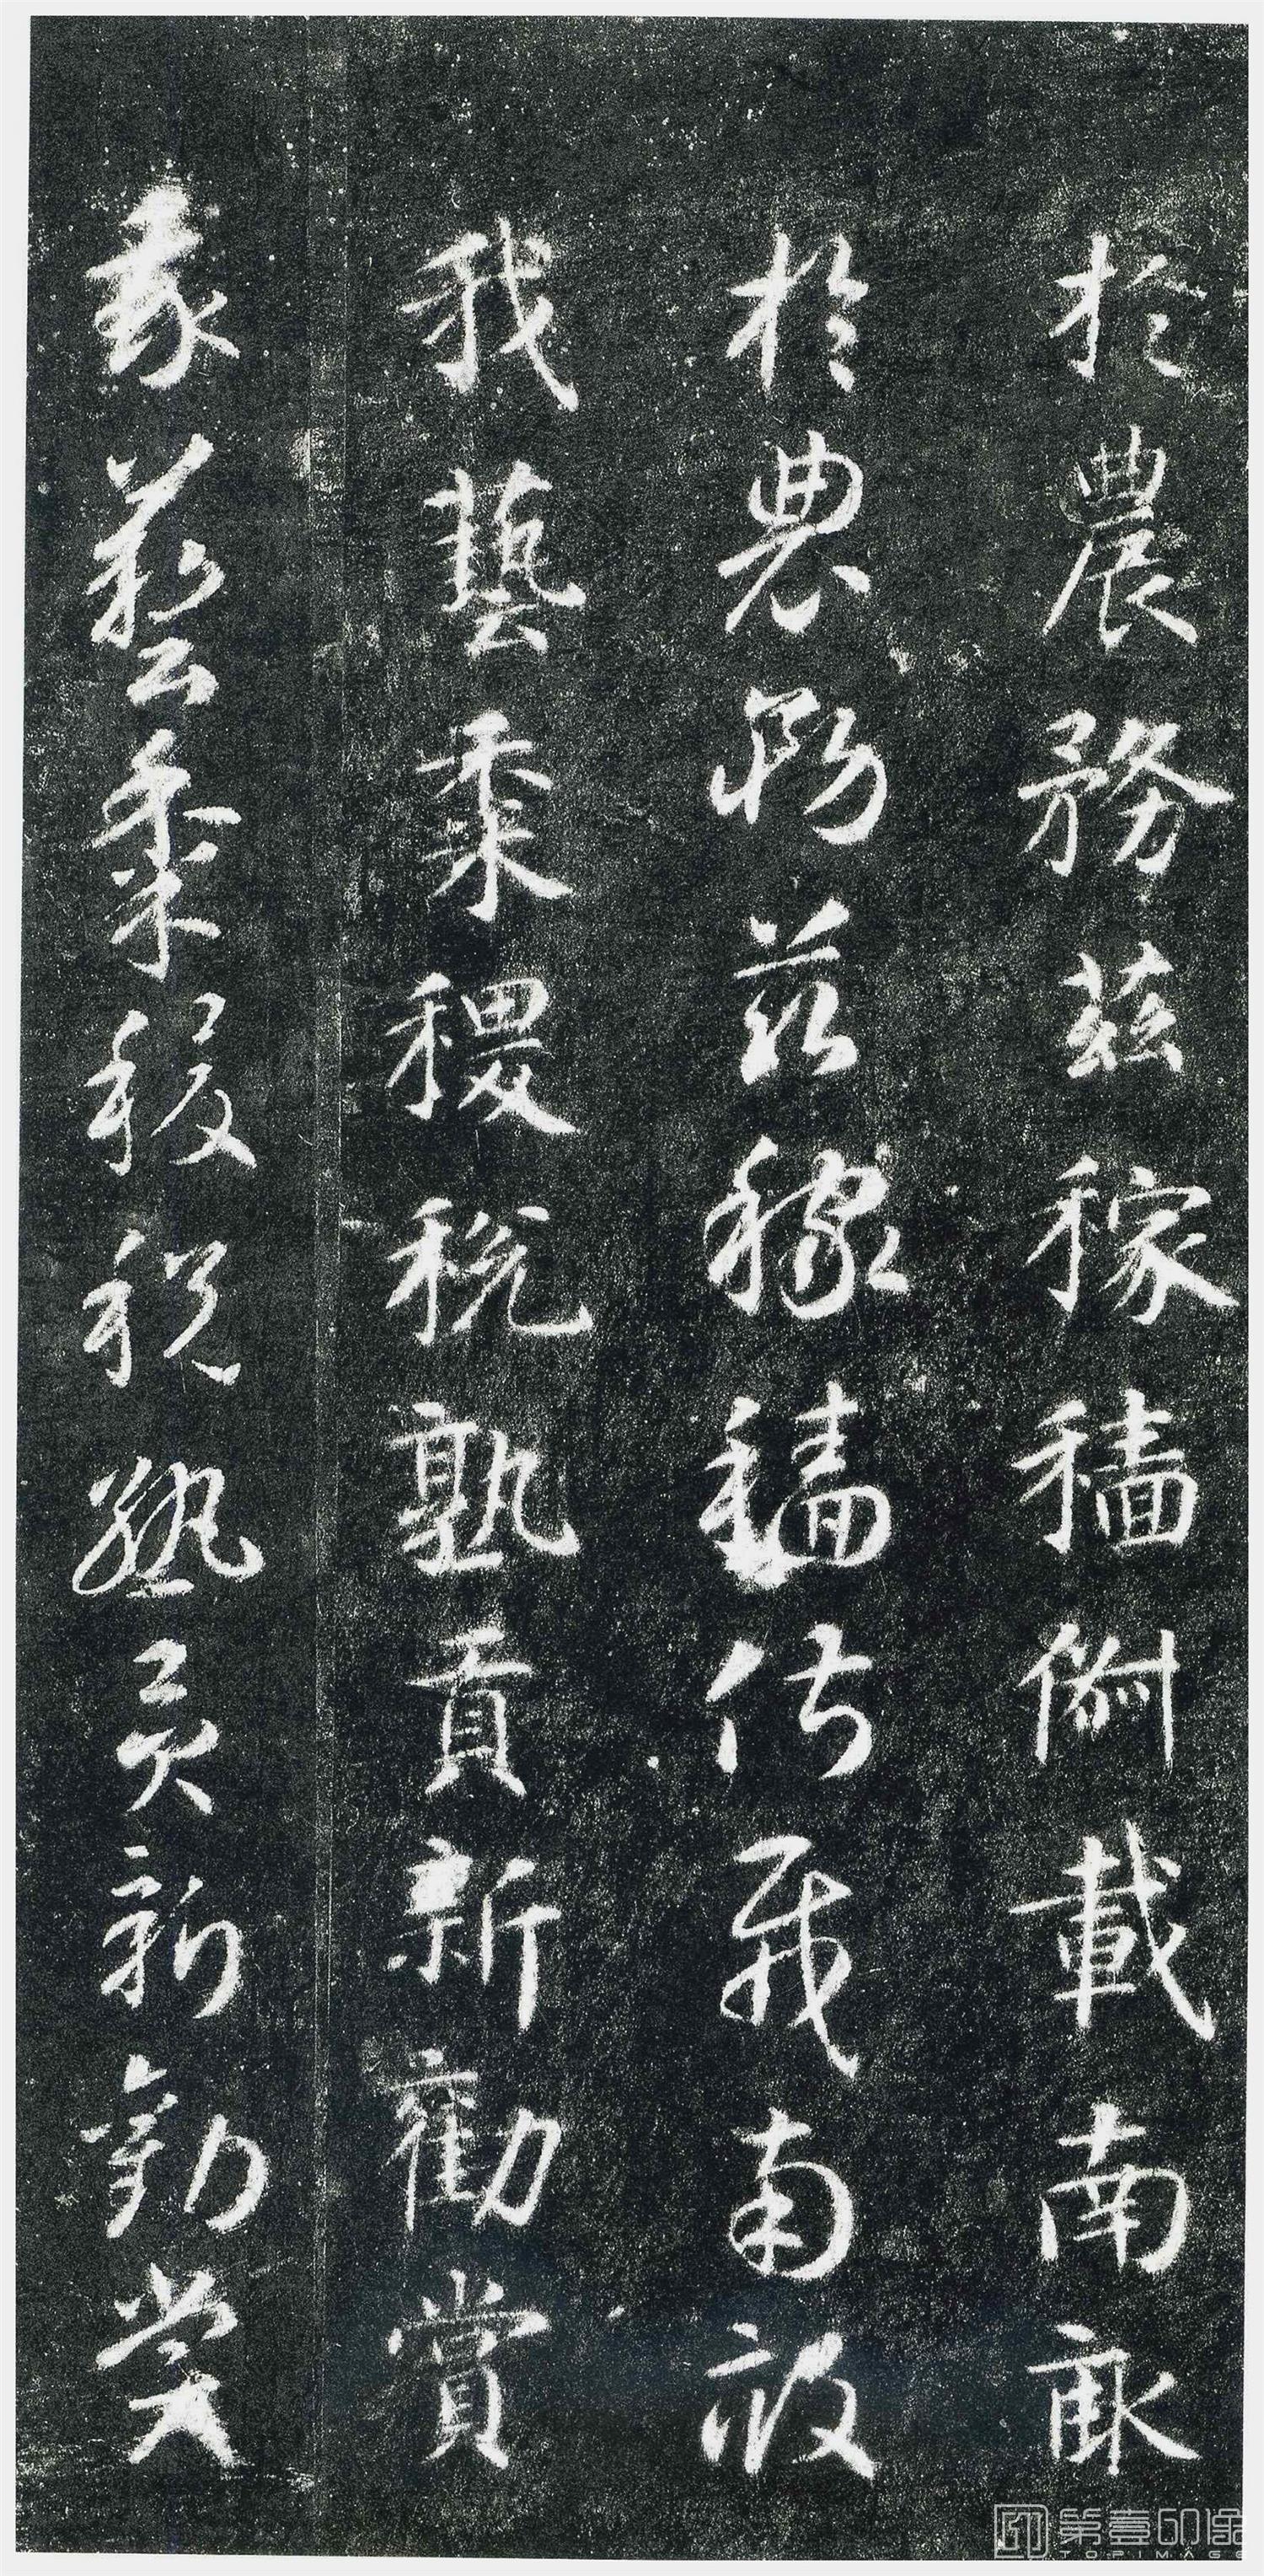 於農務茲稼穡俶載南畝
於農務茲稼穡俶載南畝
我藝黍稷稅熟貢新勸賞
我藝黍稷稅熟貢新勸賞
第壹印像
TOPIMAGE